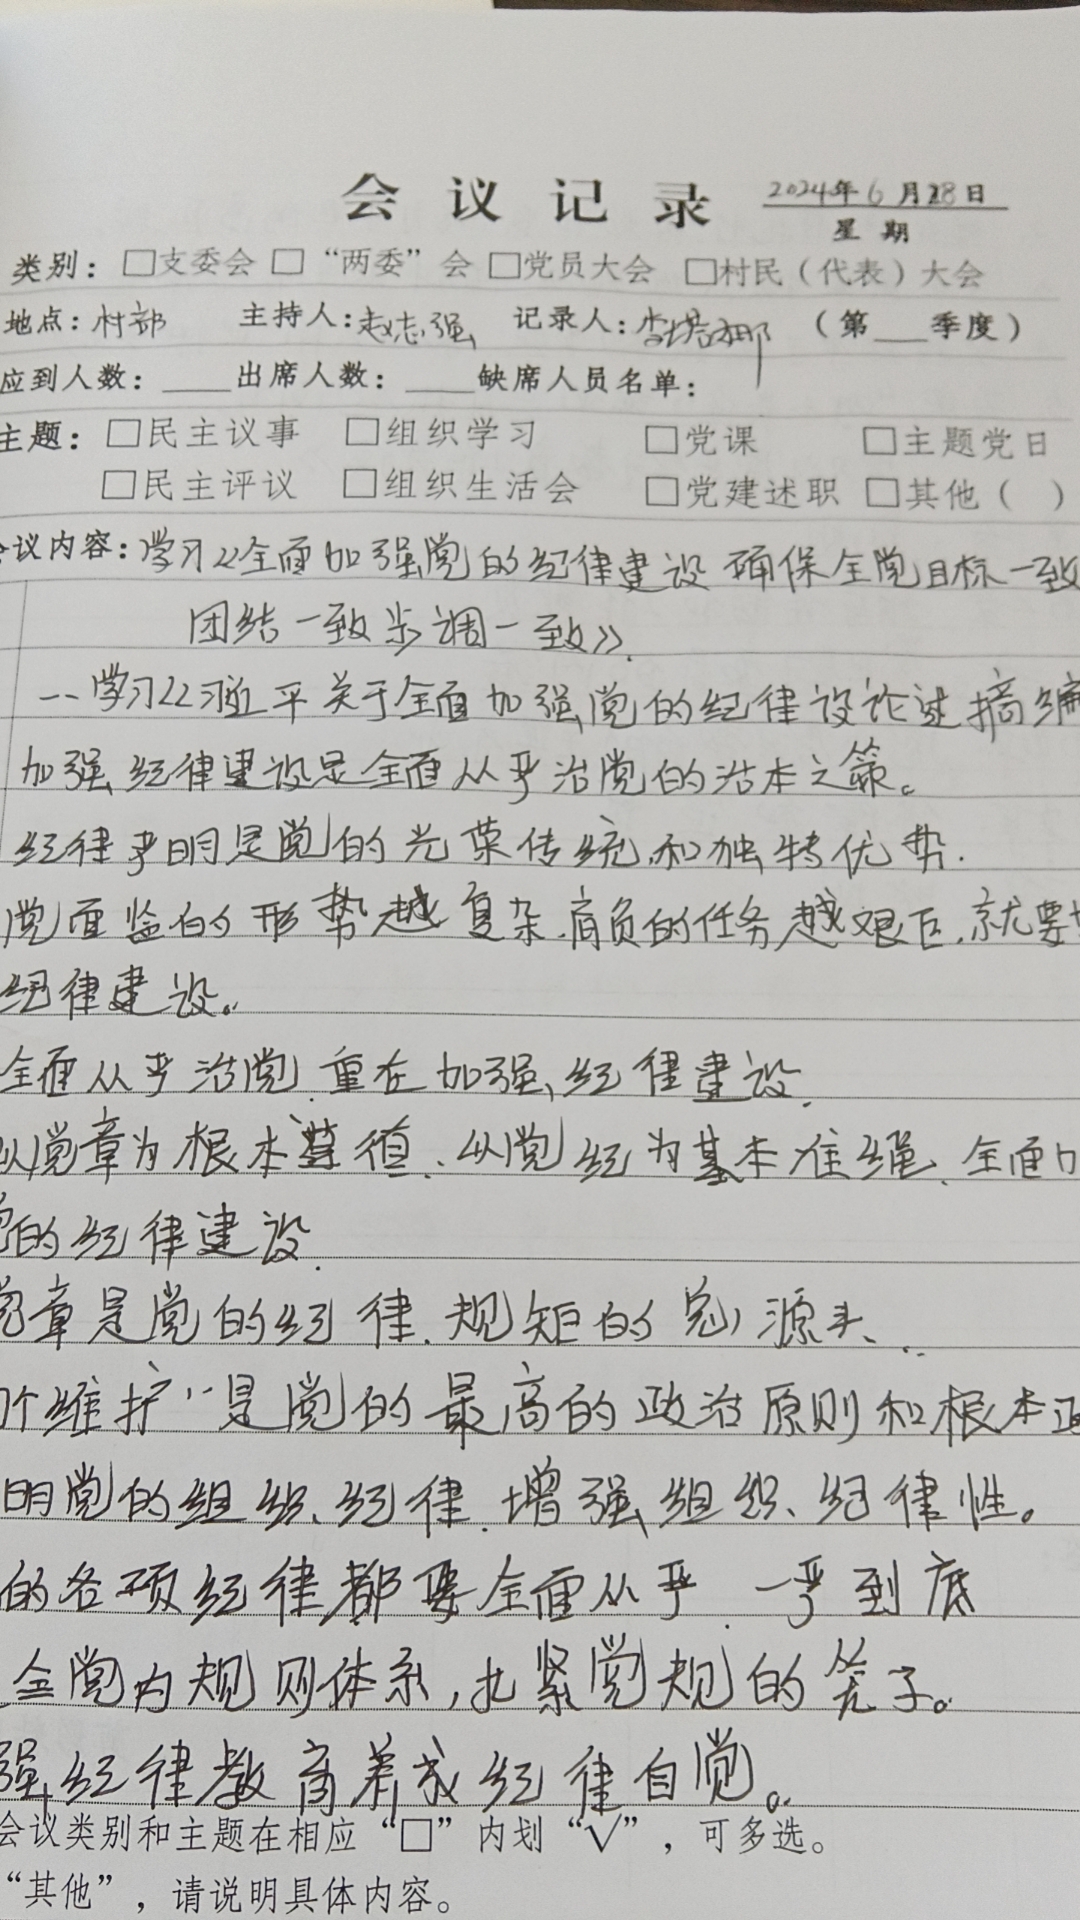 会议记录 2024年6月28日
星期
类别：□支委会 □“两委”会 □党员大会 □村民（代表）大会
地点：村部 主持人：赵志强 记录人：李塔娜 （第___季度）
应到人数：____出席人数：____缺席人员名单：
主题：□民主议事 □组织学习 □党课 □主题党日
□民主评议 □组织生活会 □党建述职 □其他（ ）
议内容：学习《全面加强党的纪律建设 确保全党目标一致
团结一致步调一致》.
一.学习《习近平关于全面加强党的纪律设论述摘编
加强纪律建设是全面从严治党的治本之策。
纪律严明是党的光荣传统和独特优势.
党面监的形势越复杂.肩负的任务越艰巨.就要
纪律建设。
全面从严治党.重在加强纪律建设.
以党章为根本遵值.以党纪为基本准绳.全面
的纪律建设.
党章是党的纪律.规矩的总源头.
个维护”是党的最高的政治原则和根本
明党的组织纪律.增强组织纪律性。
的各项纪律都要全面从严.一严到底
全党内规则体系,扎紧党规的笼子。
强纪律教育养成纪律自觉。
会议类别和主题在相应“□”内划“√”，可多选。
“其他”，请说明具体内容。